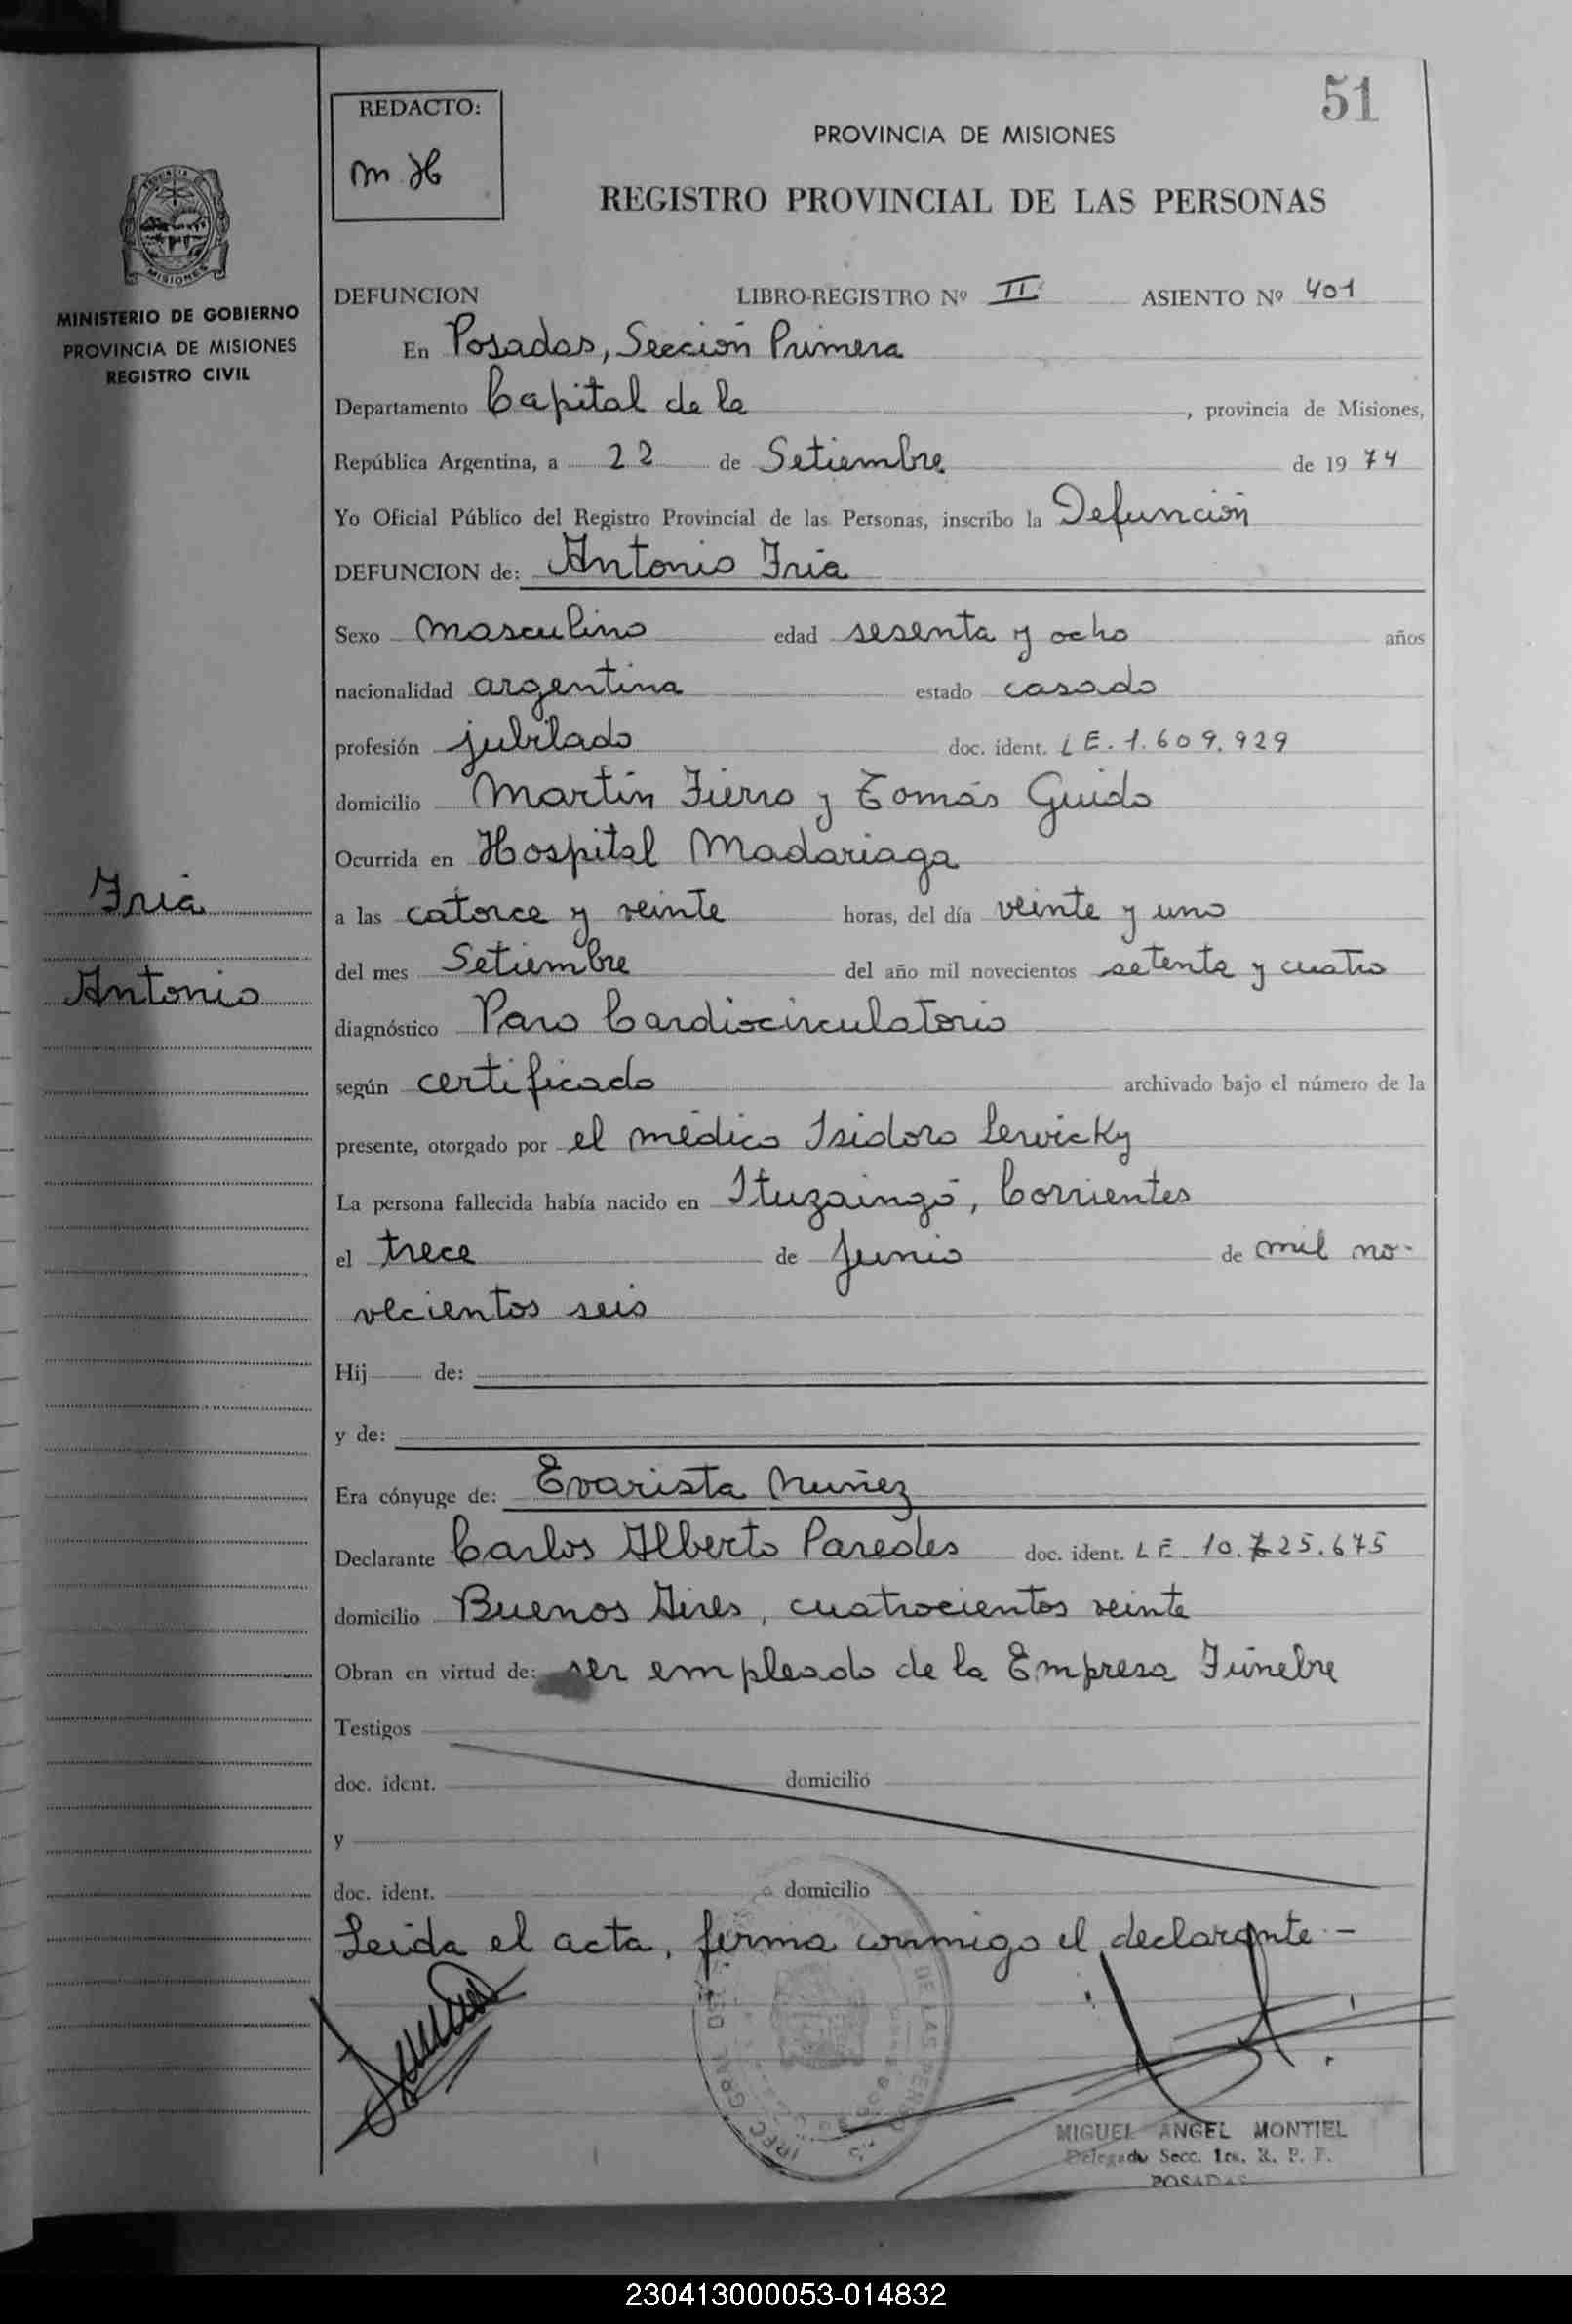 51
REDACTO:
m. H
PROVINCIA DE MISIONES
REGISTRO PROVINCIAL DE LAS PERSONAS
MISIONES
MINISTERIO DE GOBIERNO
PROVINCIA DE MISIONES
REGISTRO CIVIL
DEFUNCION LIBRO-REGISTRO Nº II ASIENTO Nº 401
En Posadas, Sección Primera
Departamento Capital de la , provincia de Misiones,
República Argentina, a 22 de Setiembre de 1974
Yo Oficial Público del Registro Provincial de las Personas, inscribo la Defunción
DEFUNCION de: Antonio Fria
Sexo masculino edad sesenta y ocho años
nacionalidad argentina estado casado
profesión jubilado doc. ident. LE. 1.609.929
domicilio Martín Fierro y Tomás Guido
Ocurrida en Hospital Madariaga
Fria
a las catorce y veinte horas, del día veinte y uno
del mes Setiembre del año mil novecientos setenta y cuatro
Antonio
diagnóstico Paro Cardiocirculatorio
según certificado archivado bajo el número de la
presente, otorgado por el médico Isidoro Lewicky
La persona fallecida había nacido en Ituzaingó, Corrientes
el trece de Junio de mil no-
vecientos seis
Hij de:
y de:
Era cónyuge de: Evarista Nuñez
Declarante Carlos Alberto Paredes doc. ident. LE. 10.725.675
domicilio Buenos Aires, cuatrocientos veinte
Obran en virtud de: ser empleado de la Empresa Fúnebre
Testigos
doc. ident. domicilio
y
doc. ident. domicilio
Leida el acta, firma conmigo el declarante.-
MIGUEL ANGEL MONTIEL
Delegado Secc. 1ra. R. P. P.
POSADAS
230413000053-014832